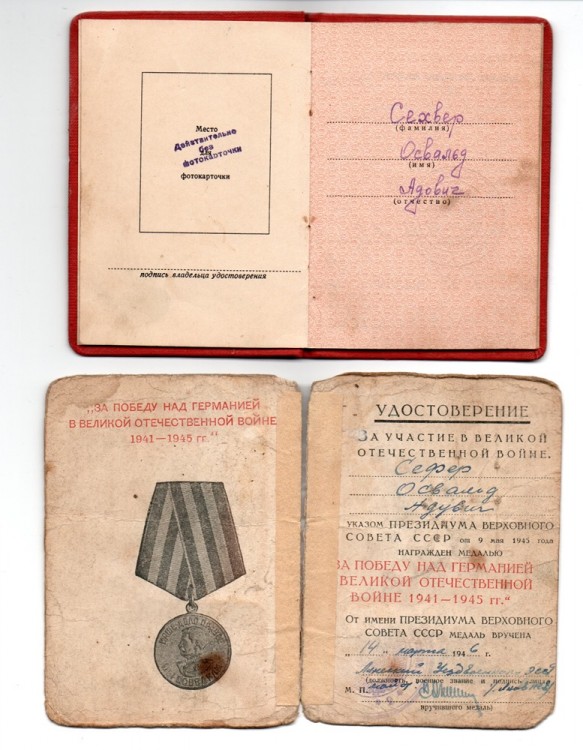 Место
для
фотокарточки
Действительно
без
фотокарточки
подпись владельца удостоверения
Сехвер
(фамилия)
Освальд
(имя)
Адович
(отчество)
„ЗА ПОБЕДУ НАД ГЕРМАНИЕЙ
В ВЕЛИКОЙ ОТЕЧЕСТВЕННОЙ ВОЙНЕ
1941—1945 гг.“
УДОСТОВЕРЕНИЕ
ЗА УЧАСТИЕ В ВЕЛИКОЙ
ОТЕЧЕСТВЕННОЙ ВОЙНЕ.
Сефер
Освальд
Адувич
УКАЗОМ ПРЕЗИДИУМА ВЕРХОВНОГО
СОВЕТА СССР от 9 мая 1945 года
НАГРАЖДЕН МЕДАЛЬЮ
ЗА ПОБЕДУ НАД ГЕРМАНИЕЙ
ВЕЛИКОЙ ОТЕЧЕСТВЕННОЙ
ВОЙНЕ 1941—1945 гг.“
От имени ПРЕЗИДИУМА ВЕРХОВНОГО
СОВЕТА СССР МЕДАЛЬ ВРУЧЕНА
„14“ марта 1946 г.
(должность военное звание и подпись лица
М. П.
вручившего медаль)